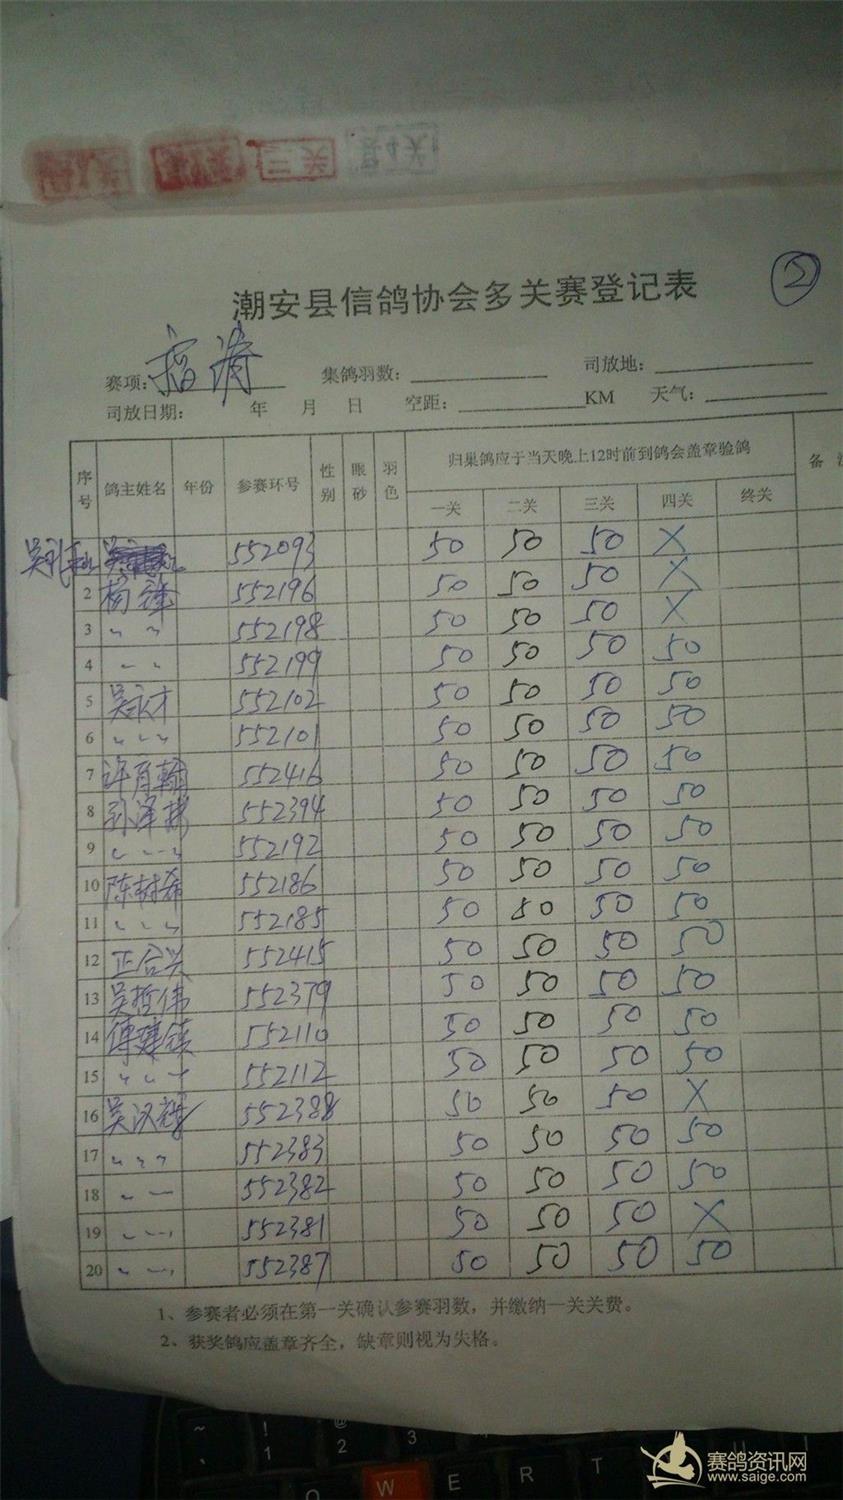 三关
县4关
②
潮安县信鸽协会多关赛登记表
赛项： 集鸽羽数： 司放地：
司放日期： 年 月 日 空距： KM 天气：
序号 鸽主姓名 年份 参赛环号 性别 眼砂 羽色 归巢鸽应于当天晚上12时前到鸽会盖章验鸽 备
一关 二关 三关 四关 终关
552093 50 50 50 X
2 杨锋 552196 50 50 50 X
3 〃 〃 552198 50 50 50 X
4 〃 〃 552199 50 50 50 50
5 吴永才 552102 50 50 50 50
6 〃 〃 〃 552101 50 50 50 50
7 许育翰 552416 50 50 50 50
8 孙泽 552394 50 50 50 50
9 〃 〃 〃 552192 50 50 50 50
10 陈树希 552186 50 50 50 50
11 〃 〃 〃 552185 50 80 50 50
12 正合兴 552415 50 50 50 50
13 吴哲伟 552379 50 50 50 50
14 傅建镇 552110 50 50 50 50
15 〃 〃 〃 552112 50 50 50 50
16 吴汉 552388 50 50 50 X
17 〃 〃 〃 552383 50 50 50 50
18 〃 〃 552382 50 50 50 50
19 〃 〃 〃 552381 50 50 50 X
20 〃 〃 〃 552387 50 50 50 50
1、参赛者必须在第一关确认参赛羽数，并缴纳一关关费。
2、获奖鸽应盖章齐全，缺章则视为失格。
~ ! @
1 2 3
Q W E R T
赛鸽资讯网
www.saige.com